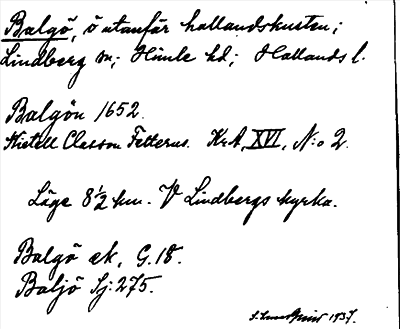 Balgö, ö utanför hallandskusten;
Lindberg sn; Himle hd; Hallands l.
Balgön 1652.
Kietell Classon Felterus. KrA, XVI, N:o 2.
Läge 8 1/2 km. V Lindbergs kyrka.
Balgö ek. G. 18.
Baljö Sj: 275.
1937.